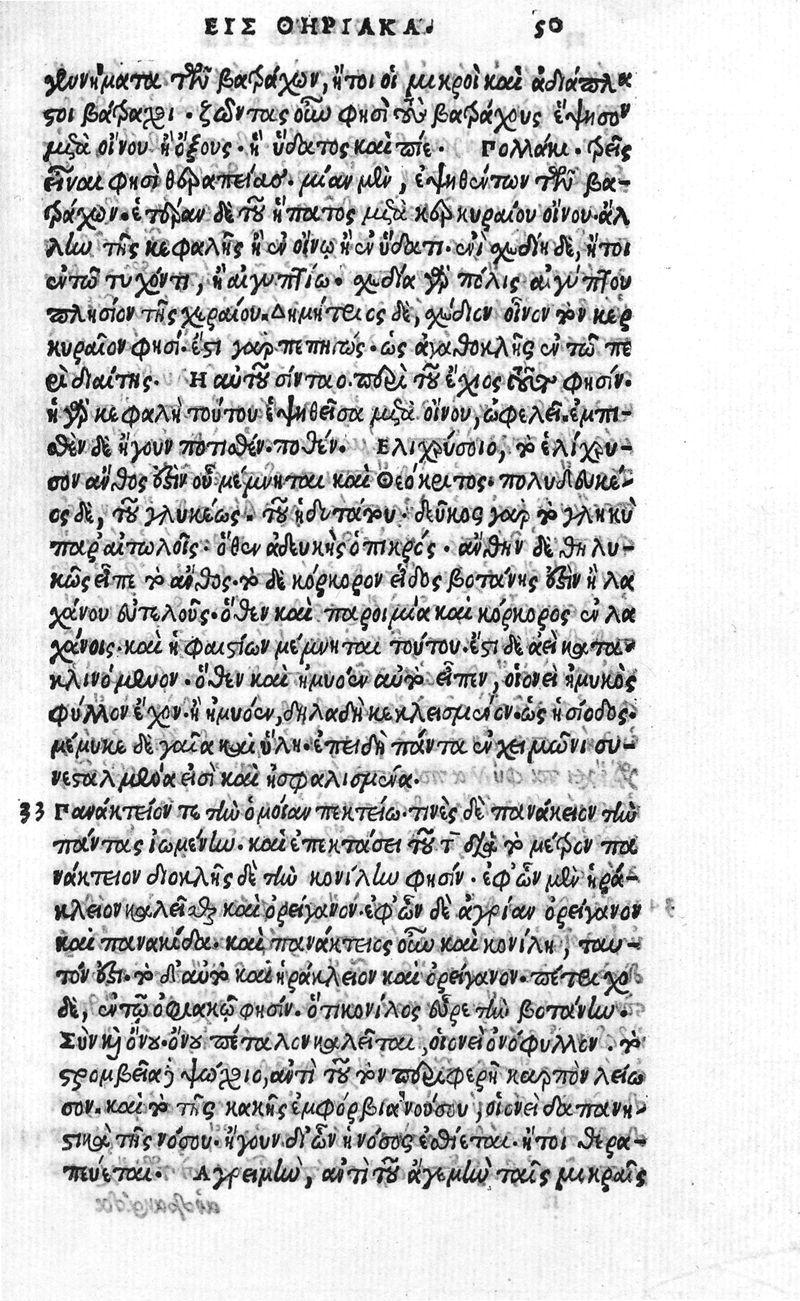 ΕΙΣ ΘΗΡΙΑΚΑ. 50
γεννήματα τῶν βατράχων, ἤτοι οἱ μικροὶ καὶ ἀδιάπλα
στοι βάτραχοι. ζῶντας οὕτω φησὶ τοὺς βατράχους ἕψησον
μετὰ οἴνου ἢ ὄξους. ἢ ὕδατος καὶ πίε. Πολλάκι. τρεῖς
εἶναι φησὶ θεραπείας. μίαν μὲν, ἑψηθέντων τῶν βα-
τράχων. ἑτέραν δὲ τοῦ ἥπατος μετὰ κερκυραίου οἴνου. ἄλ
λην τῆς κεφαλῆς ἢ ἐν οἴνῳ ἢ ἐν ὕδατι. ἐνὶ χωδίῃ δὲ, ἤτοι
ἐν τῷ τυχόντι, ἢ αἰγυπτίῳ. χωδία γὰρ πόλις αἰγύπτου
πλησίον τῆς χεραίου. Δημήτριος δὲ, χώδιον οἶνον τὸν κερ
κυραῖον φησί. ἔστι γὰρ πεπητώς. ὡς ἀγαθοκλῆς ἐν τῷ πε
ρὶ διαίτης. Η αὐτοῦ σίνταο. περὶ τοῦ ἔχιος τοῦτο φησίν.
ἡ γὰρ κεφαλὴ τούτου ἑψηθεῖσα μετὰ οἴνου, ὠφελεῖ. ἐμπι-
θὲν δὲ ἤγουν ποτιθέν. ποθέν. Ελιχρύσοιο, τὸ ἑλίχρυ-
σον ἄνθος ἐστὶν οὗ μέμνηται καὶ Θεόκριτος. πολυδευκέ-
ος δὲ, τοῦ γλυκέως. τοῦ ἡδυτάτου. δεῦκος γὰρ τὸ γληκὺ
παρ αἰτωλοῖς. ὅθεν ἀδευκὴς ὁ πικρός. ἄνθην δὲ θηλυ-
κῶς εἶπε τὸ ἄνθος. τὸ δὲ κόρκορον εἶδος βοτάνης ἐστὶν ἢ λα
χάνου εὐτελοῦς. ὅθεν καὶ παροιμία καὶ κόρκορος ἐν λα
χάνοις. καὶ ἡφαιστίων μέμνηται τούτου. ἔστι δὲ ἀεὶ κατα-
κλινόμενον. ὅθεν καὶ ἠμυόεν αὐτὸ εἶπεν, οἱονεὶ ἠμυκὸς
φύλλον ἔχον. ἢ ἠμυόεν, δηλαδὴ κεκλεισμένον. ὡς ἡσίοδος.
μέμυκε δὲ γαῖα καὶ ὕλη. ἐπειδὴ πάντα ἐν χειμῶνι συ-
νεσταλμένα εἰσὶ καὶ ἠσφαλισμένα.
33 Πανάκτειον τε τὴν ὁμοίαν πεκτείω. τινὲς δὲ πανάκειον τὴν
πάντας ἰωμένην. καὶ ἐπεκτάσει τοῦ τ διὰ τὸ μέτρον πα
νάκτειον διοκλῆς δὲ τὴν κονίλην φησίν. ἐφ' ὧν μὲν ἡρά-
κλειον καλεῖται καὶ ὀρείγανον. ἐφ' ὧν δὲ ἀγρίαν ὀρείγανον
καὶ πανακίδα. καὶ πανάκτειος οὕτω καὶ κονίλη, ταυ-
τόν ἐστι. τὸ δ' αὐτὸ καὶ ἡράκλειον καὶ ὀρείγανον. πέτριχος
δὲ, ἐν τῷ ὀφιακῷ φησίν. ὅτι κονίλος εὗρε τὴν βοτάνην.
Σὺν καὶ ὄνου. ὄνου πέταλον καλεῖται, οἱονεὶ ὀνόφυλλον. τὸ
στρομβεῖα ψώχοιο, ἀντὶ τοῦ τὸν περιφερῆ καρπὸν λείω
σον. καὶ τὸ τῆς κακῆς ἐμφόρβια νούσου, οἱονεὶ δαπανη-
στικὰ τῆς νόσου. ἤγουν δι' ὧν ἡ νόσος ἐσθίεται. ἤτοι θερα-
πεύεται. Αγρειμὼν, ἀντὶ τοῦ ἄγεμὼν ταῖς μικραῖς